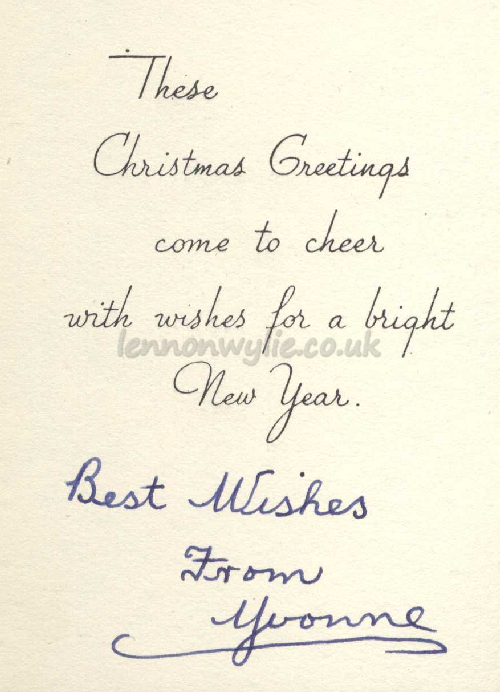 These
Christmas Greetings
come to cheer
with wishes for a bright
lennonwylie.co.uk
New Year.
Best Wishes
From
Yvonne